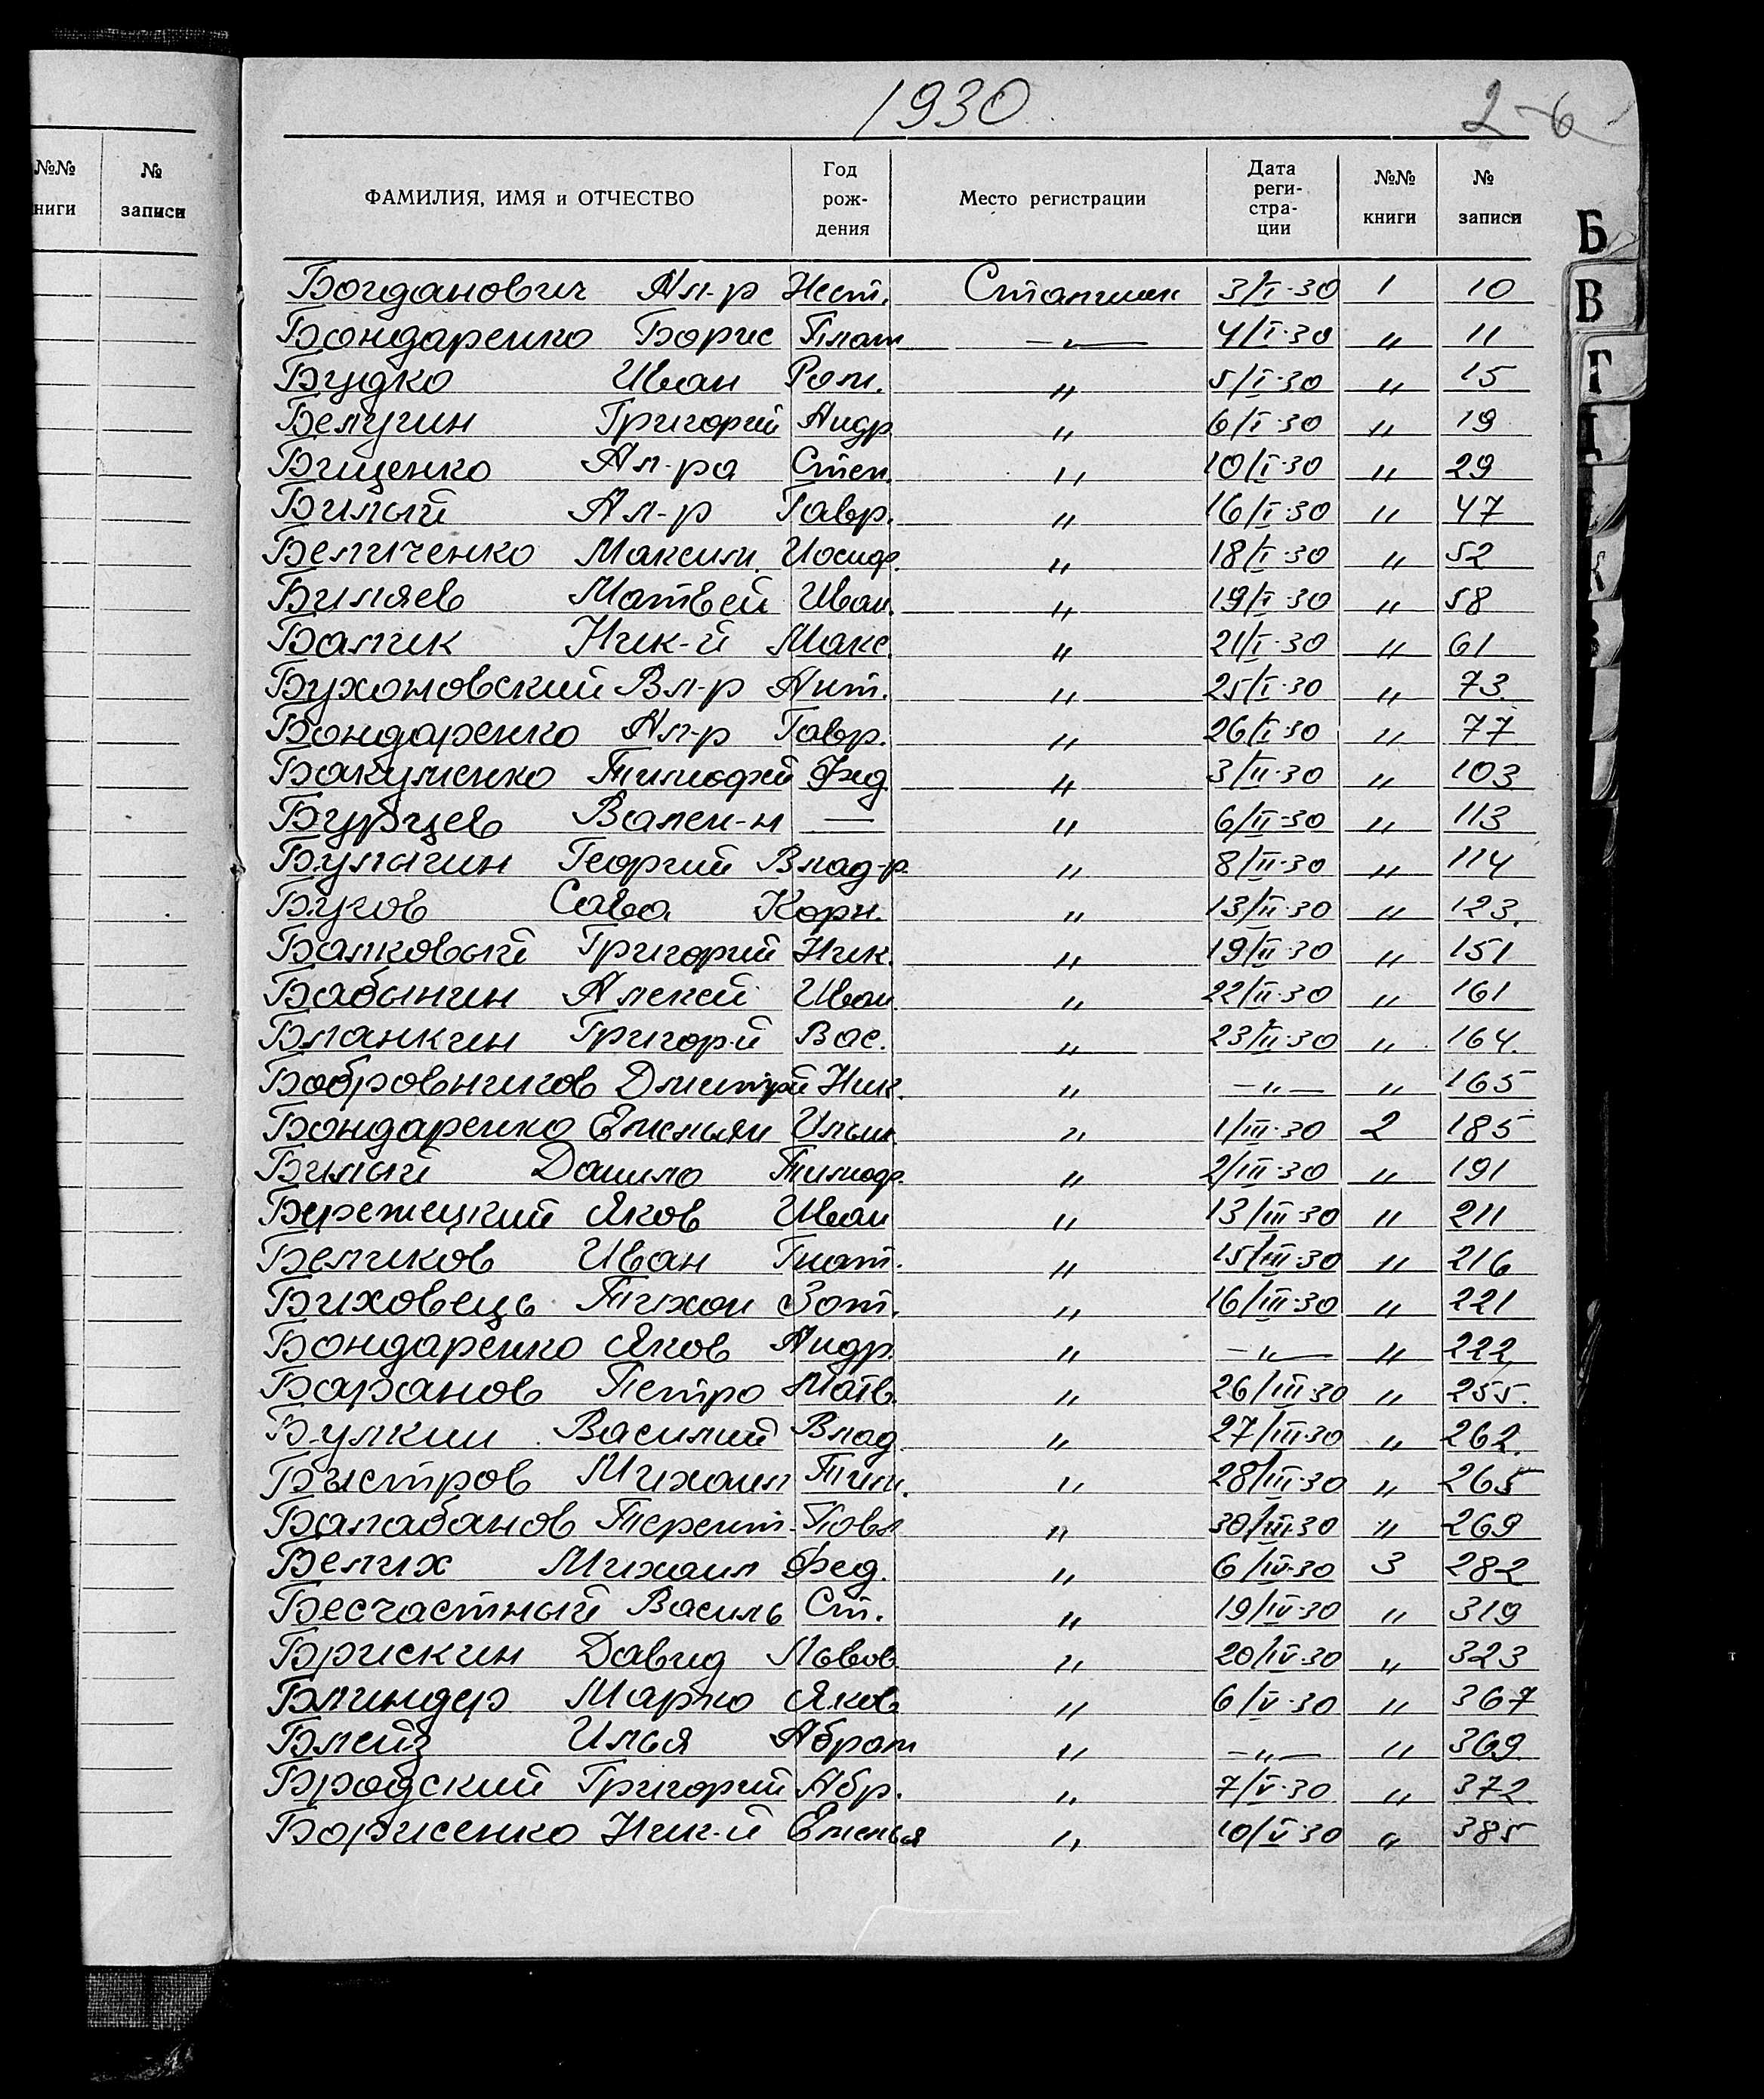 1930
2-6
№№ книги
№ записи
ФАМИЛИЯ, ИМЯ и ОТЧЕСТВО
Год рож- дения
Место регистрации
Дата реги- стра- ции
№№ книги
№ записи
Б
В
Г
Богданович Ал-р Нест. 3/I-30 1 10
Бондаренко Борис Плат —„— 4/I-30 „ 11
Будко Иван Ром. „ 5/I-30 „ 15
Белугин Григорий Андр „ 6/I-30 „ 19
Бищенко Ал-ра Степ. „ 10/I-30 „ 29
Билый Ал-р Гавр. „ 16/I-30 „ 47
Беличенко Максим. Иосиф. „ 18/I-30 „ 52
Биляев Матвей Иван. „ 19/I-30 „ 58
Балик Ник-й Макс. „ 21/I-30 „ 61
Бухоновский Вл-р Ант. „ 25/I-30 „ 73
Бондаренко Ал-р Гавр. „ 26/I-30 „ 77
Бакуменко Тимофей Фед „ 3/II-30 „ 103
Бурцев Вален-н — „ 6/II-30 „ 113
Булыгин Георгий Влад-р. „ 8/II-30 „ 114
Бугов Сава Корн. „ 13/II-30 „ 123.
Балковый Григорий Ник. „ 19/II-30 „ 151
Бабынин Алексей Иван. „ 22/II-30 „ 161
Бланкин Григор-й Вас. „ 23/II-30 „ 164.
Бобровников Дмитрий Ник. „ —„— „ 165
Бондаренко Емельян Ильи. „ 1/III-30 2 185
Билый Данило Тимоф. „ 2/III-30 „ 191
Бережецкий Яков Иван „ 13/III-30 „ 211
Беликов Иван Гнат. „ 15/III-30 „ 216
Биховець Тихон Зот. „ 16/III-30 „ 221
Бондаренко Яков Андр. „ —„— „ 222
Баранов Петро Матв. „ 26/III-30 „ 255.
Булкин Василий Влад. „ 27/III-30 „ 262.
Быстров Михаил Тим. „ 28/III-30 „ 265
Балабанов Терент. Павл „ 30/III-30 „ 269
Белих Михаил Фед. „ 6/IV-30 3 282
Бесчастный Василь Ст. „ 19/IV-30 „ 319
Брискин Давид Львов. „ 20/IV-30 „ 323
Блиндер Марко Яков „ 6/V-30 „ 367
Блейз Илья Абрам „ —„— „ 369
Бродский Григорий Абр. „ 7/V-30 „ 372.
Борисенко Ник-й Емелья „ 10/V-30 „ 385